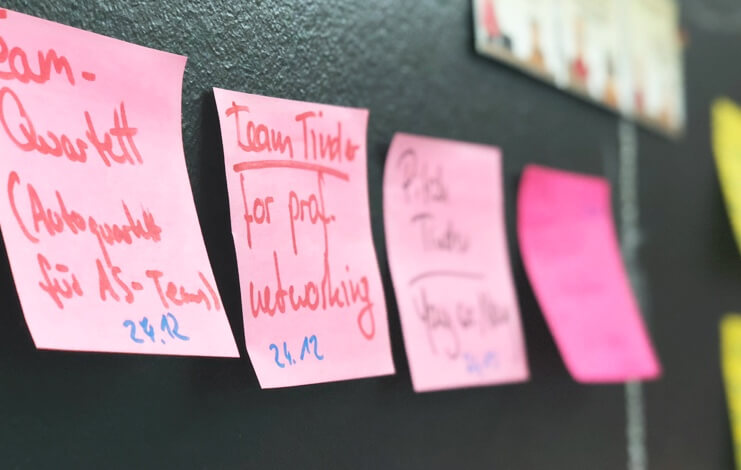 Team-
Quartett
(Autoquartett
für AS-Teams)
24.12
Team Tinder
for prof.
networking
24.12
Pitch
Tinder